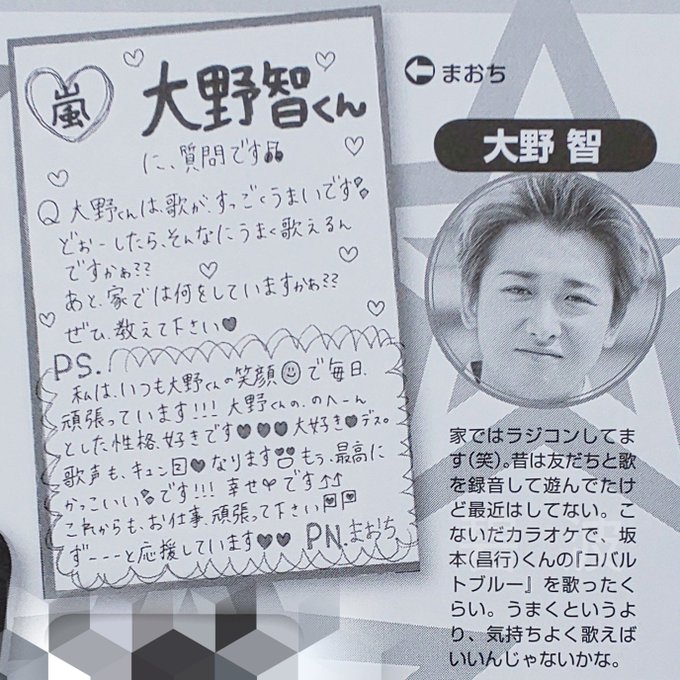 嵐
大野智くん
に、質問です
Q 大野くんは、歌が、すっごくうまいです
どおーしたら、そんなにうまく歌えるん
ですかぁ??
あと、家では何をしていますかぁ??
ぜひ、教えて下さい
PS.
私は、いつも大野くんの笑顔で毎日、
頑張っています!!! 大野くんの、のへーん
とした性格、好きです 大好きデス。
歌声も、キュンなります もう、最高に
かっこいいです!!! 幸せです↑↑
これからも、お仕事、頑張って下さい
ずーーーと応援しています PN.まおち
まおち
大野 智
家ではラジコンしてま
す(笑)。昔は友だちと歌
を録音して遊んでたけ
ど最近はしてない。こ
ないだカラオケで、坂
本(昌行)くんの『コバル
トブルー』を歌ったく
らい。うまくというよ
り、気持ちよく歌えば
いいんじゃないかな。